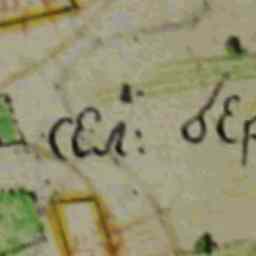 сел: бер